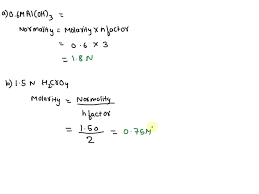 a) 0.6M Al(OH)₃ =
Normality = Molarity × n factor
= 0.6 × 3
= 1.8 N
b) 1.5 N H₂CrO₄
Molarity = Normality
n factor
= 1.50
2
= 0.75M